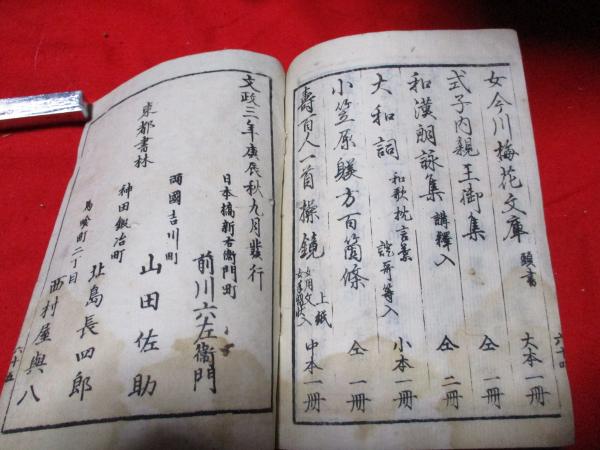 女今川梅花文庫 頭書 大本一冊
式子内親王御集 仝一冊
和漢朗詠集 講釈入 仝二冊
大和詞 和歌枕言葉 入 小本一冊
小笠原躾方百箇條 仝一冊
壽百人一首操鏡 上紙 中本一冊
六十四
文政三年庚辰秋九月發行
日本橋新右衞門町
前川六左衞門
兩國吉川町
山田佐助
東都書林
神田鍛冶町
北島長四郎
馬喰町二丁目
西村屋與八
六十五